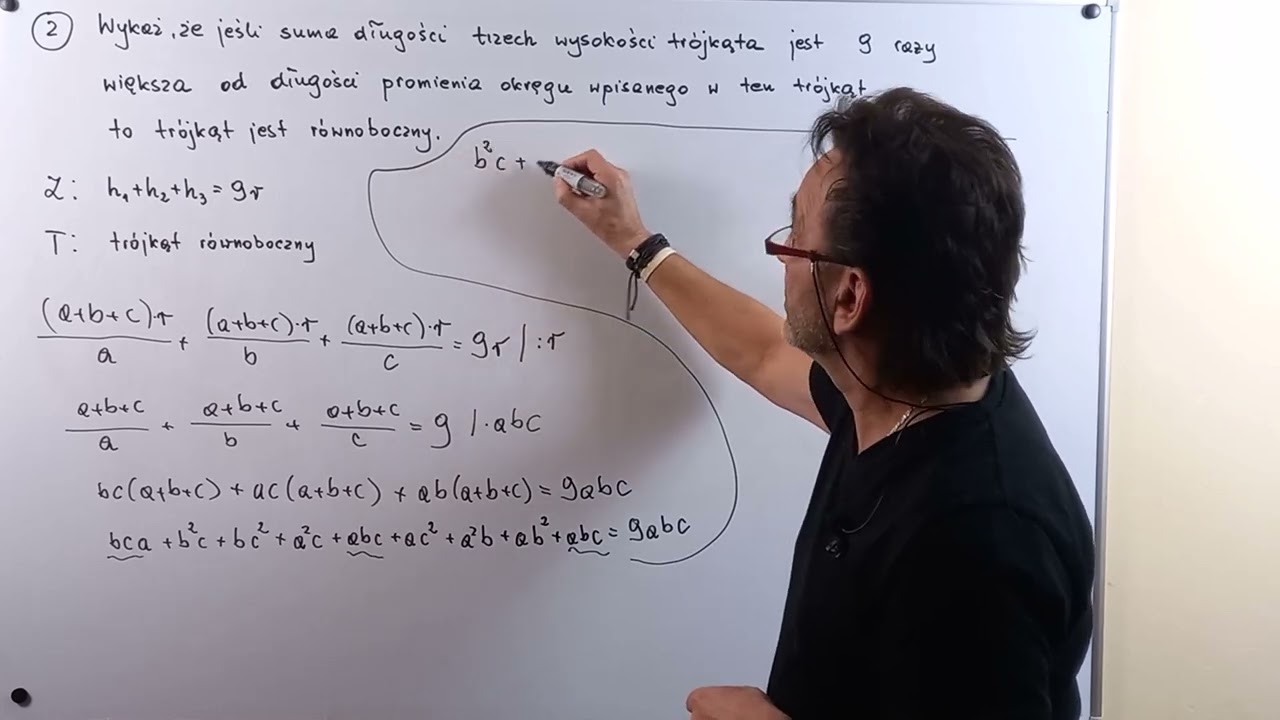 ② Wykaż, że jeśli suma długości trzech wysokości trójkąta jest 9 razy
większa od długości promienia okręgu wpisanego w ten trójkąt
to trójkąt jest równoboczny.
b²c +
Z: h₁+h₂+h₃=9r
T: trójkąt równoboczny
(a+b+c)·r/a + (a+b+c)·r/b + (a+b+c)·r/c = 9r /:r
a+b+c/a + a+b+c/b + a+b+c/c = 9 /·abc
bc(a+b+c) + ac(a+b+c) + ab(a+b+c) = 9abc
bca + b²c + bc² + a²c + abc + ac² + a²b + ab² + abc = 9abc